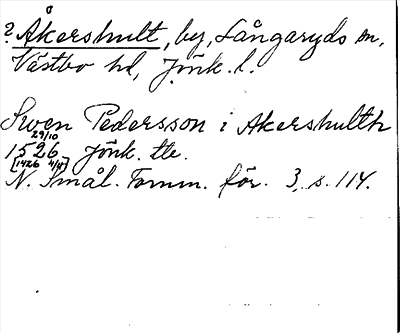 ? Åkershult, by, Långaryds sn,
Västbo hd, Jönk. l.
Swen Pedersson i Akershulth
29/10
1526 Jönk. tle.
[1426 4/11]
N. Smål. Fornm. för. 3, s. 114.